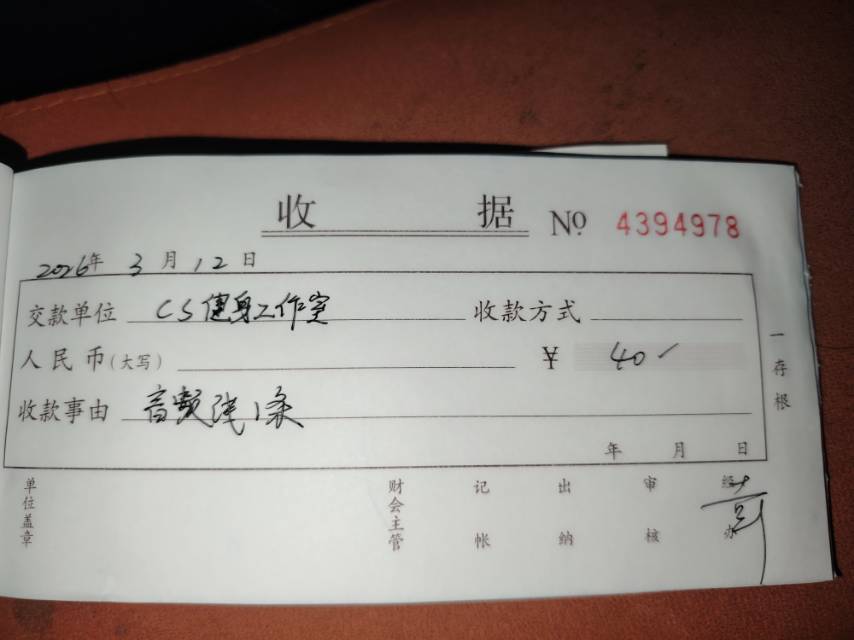 收 据 Nº 4394978
2026年 3 月 12 日
交款单位 CS健身工作室 收款方式
人民币(大写) ¥ 40
收款事由 音频线1条
年 月 日
一存根
单位盖章 财会主管 记帐 出纳 审核 经办